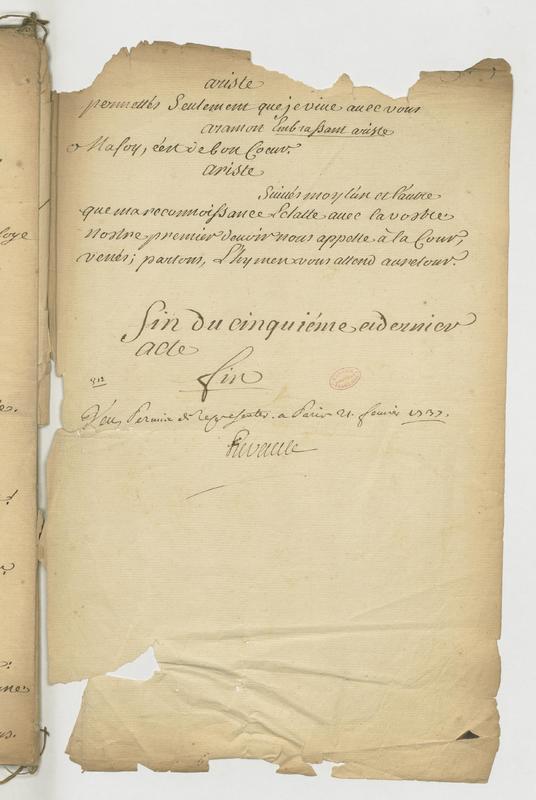 ariste
permettés Seulement que je vive avec vous
aramont Embrassant ariste
Mafoy, c'est de bon Coeur.
ariste
Suivés moy l'un et l'autre
que ma reconnoissance Eclatte avec la vostre
Nostre premier devoir nous appelle à la Cour,
venés; partons, L'hymen vous attend au retour.
fin du cinquiéme et dernier
acte
fin
Veu, Permis de representer. a Paris 21. fevrier 1737.